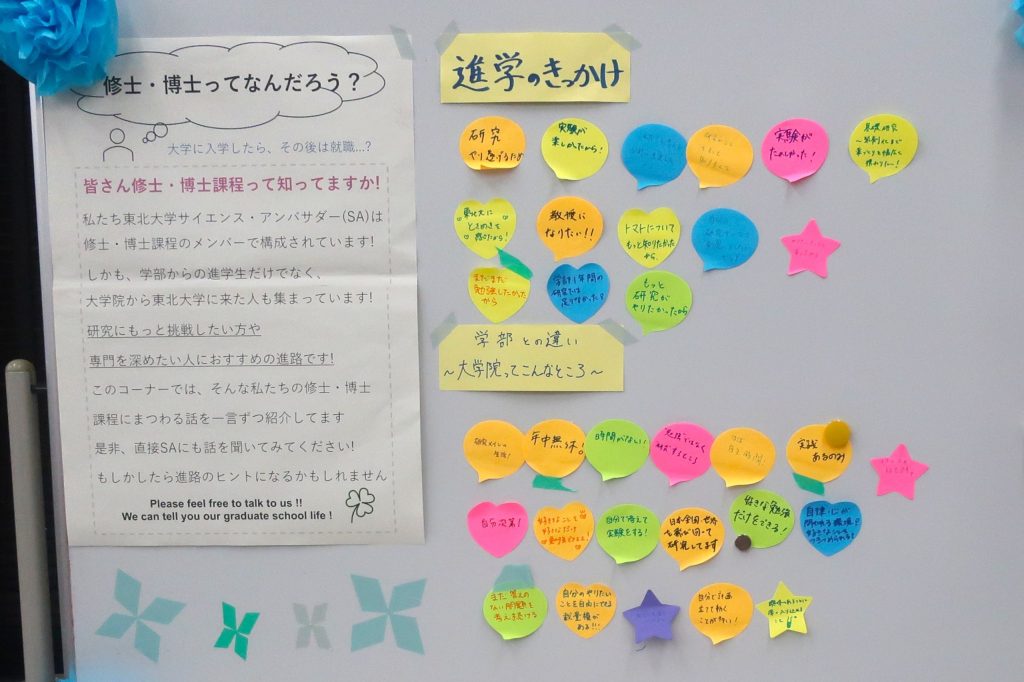 修士・博士ってなんだろう？
大学に入学したら、その後は就職...?
皆さん修士・博士課程って知ってますか!
私たち東北大学サイエンス・アンバサダー(SA)は
修士・博士課程のメンバーで構成されています!
しかも、学部からの進学生だけでなく、
大学院から東北大学に来た人も集まっています!
研究にもっと挑戦したい方や
専門を深めたい人におすすめの進路です!
このコーナーでは、そんな私たちの修士・博士
課程にまつわる話を一言ずつ紹介してます
是非、直接SAにも話を聞いてみてください!
もしかしたら進路のヒントになるかもしれません
Please feel free to talk to us !!
We can tell you our graduate school life !
進学のきっかけ
研究
やり遂げるため
実験が
楽しかたから!
実験が
たのしかった!
基礎研究
東北大に
ときめきを
感じたから!
教授に
なりたい!!
トマトについて
もっと知りたかた
から
まだまだ
勉強したかった
から
学部1年間の
研究では
足りなかった!
もっと
研究が
やりたかったから
学部との違い
～大学院ってこんなところ～
年中無休!
時間がなしい
勉強ではなく
実践
あるのみ
自分次第!
好きなことを
好きなだけ
自分で考えて
実験をする!
日本全国・世界
を飛び回って
研究してます
好きな勉強
だけをできる!
自律心が
問われる環境?
まだ答えの
ない問題を
考え続ける
自分のやりたい
ことを自由にできる
裁量権が
ある!!
自分で計画
立てて動く
ことが多い!